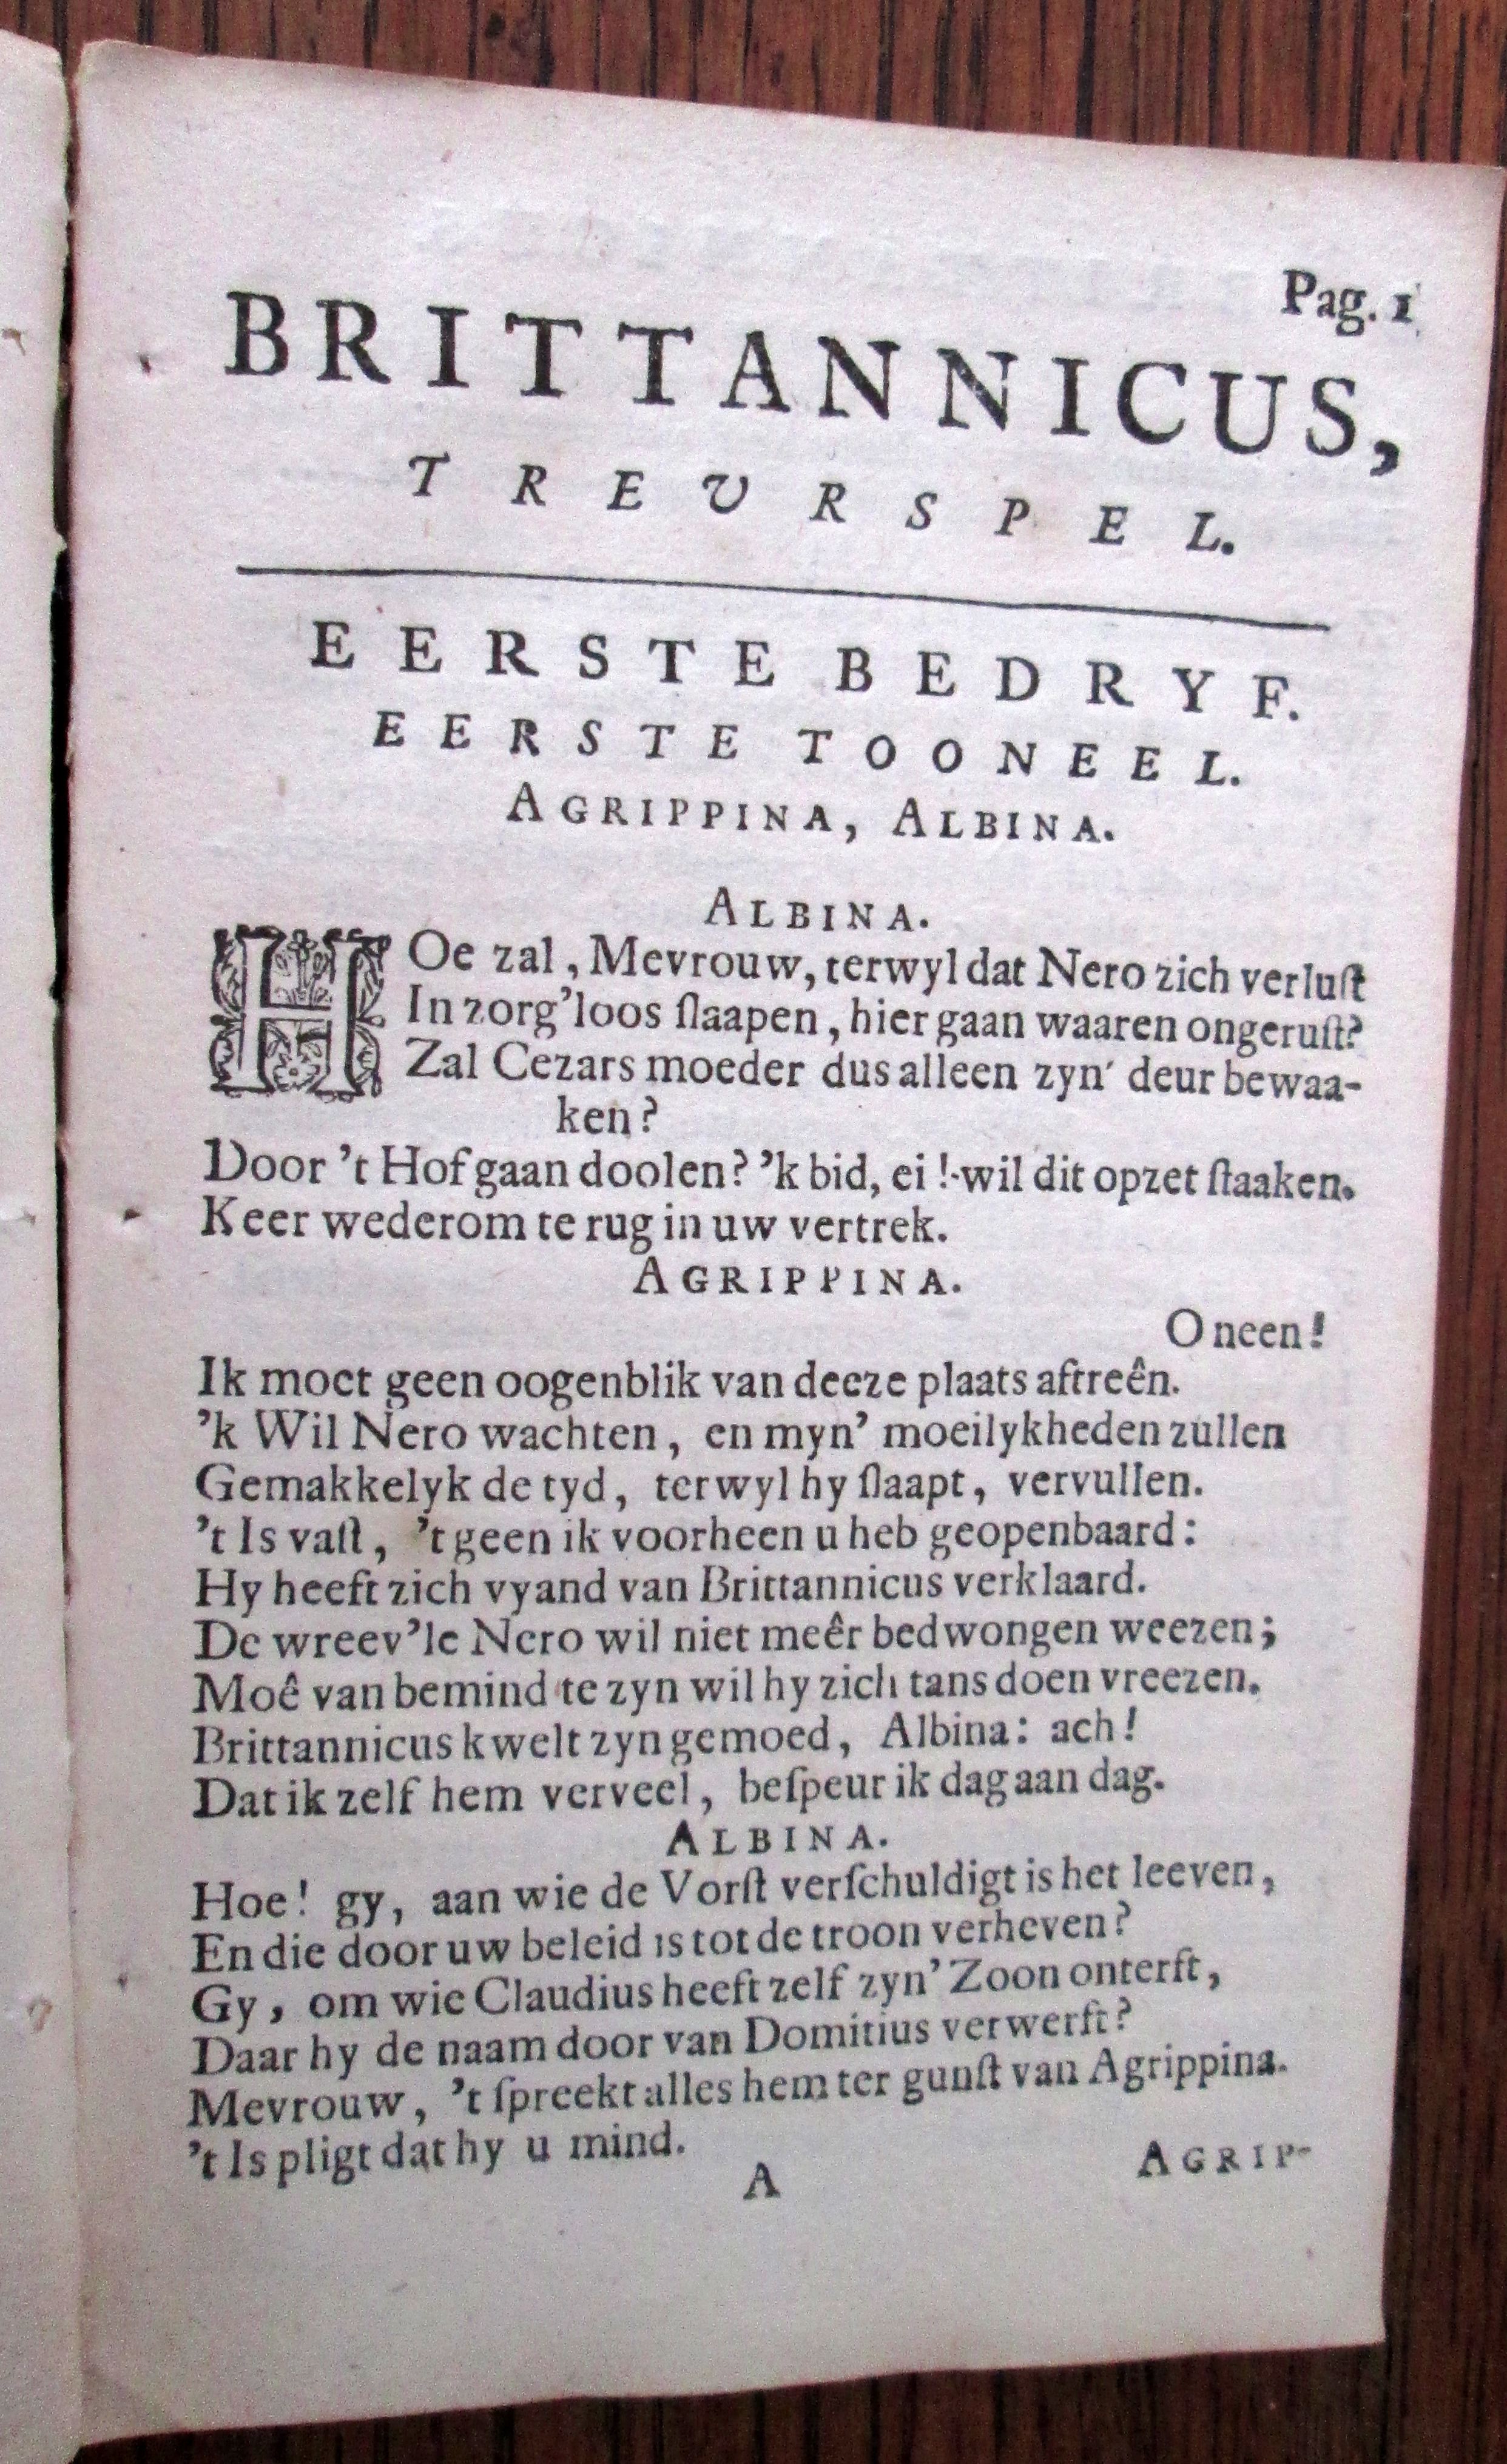 Pag. 1
BRITTANNICUS,
TREURSPEL.
EERSTE BEDRYF.
EERSTE TOONEEL.
AGRIPPINA, ALBINA.
ALBINA.
HOe zal, Mevrouw, terwyl dat Nero zich verluſt
In zorg'loos ſlaapen, hier gaan waaren ongeruſt?
Zal Cezars moeder dus alleen zyn' deur bewaa-
ken?
Door 't Hof gaan doolen? 'k bid, ei! wil dit opzet ſtaaken.
Keer wederom te rug in uw vertrek.
AGRIPPINA.
O neen!
Ik moet geen oogenblik van deeze plaats aftreên.
'k Wil Nero wachten, en myn' moeilykheden zullen
Gemakkelyk de tyd, terwyl hy ſlaapt, vervullen.
't Is vaſt, 't geen ik voorheen u heb geopenbaard:
Hy heeft zich vyand van Brittannicus verklaard.
De wreev'le Nero wil niet meêr bedwongen weezen;
Moê van bemind te zyn wil hy zich tans doen vreezen.
Brittannicus kwelt zyn gemoed, Albina: ach!
Dat ik zelf hem verveel, beſpeur ik dag aan dag.
ALBINA.
Hoe! gy, aan wie de Vorſt verſchuldigt is het leeven,
En die door uw beleid is tot de troon verheven?
Gy, om wie Claudius heeft zelf zyn' Zoon onterft,
Daar hy de naam door van Domitius verwerft?
Mevrouw, 't ſpreekt alles hem ter gunſt van Agrippina.
't Is pligt dat hy u mind.
A
AGRIP-